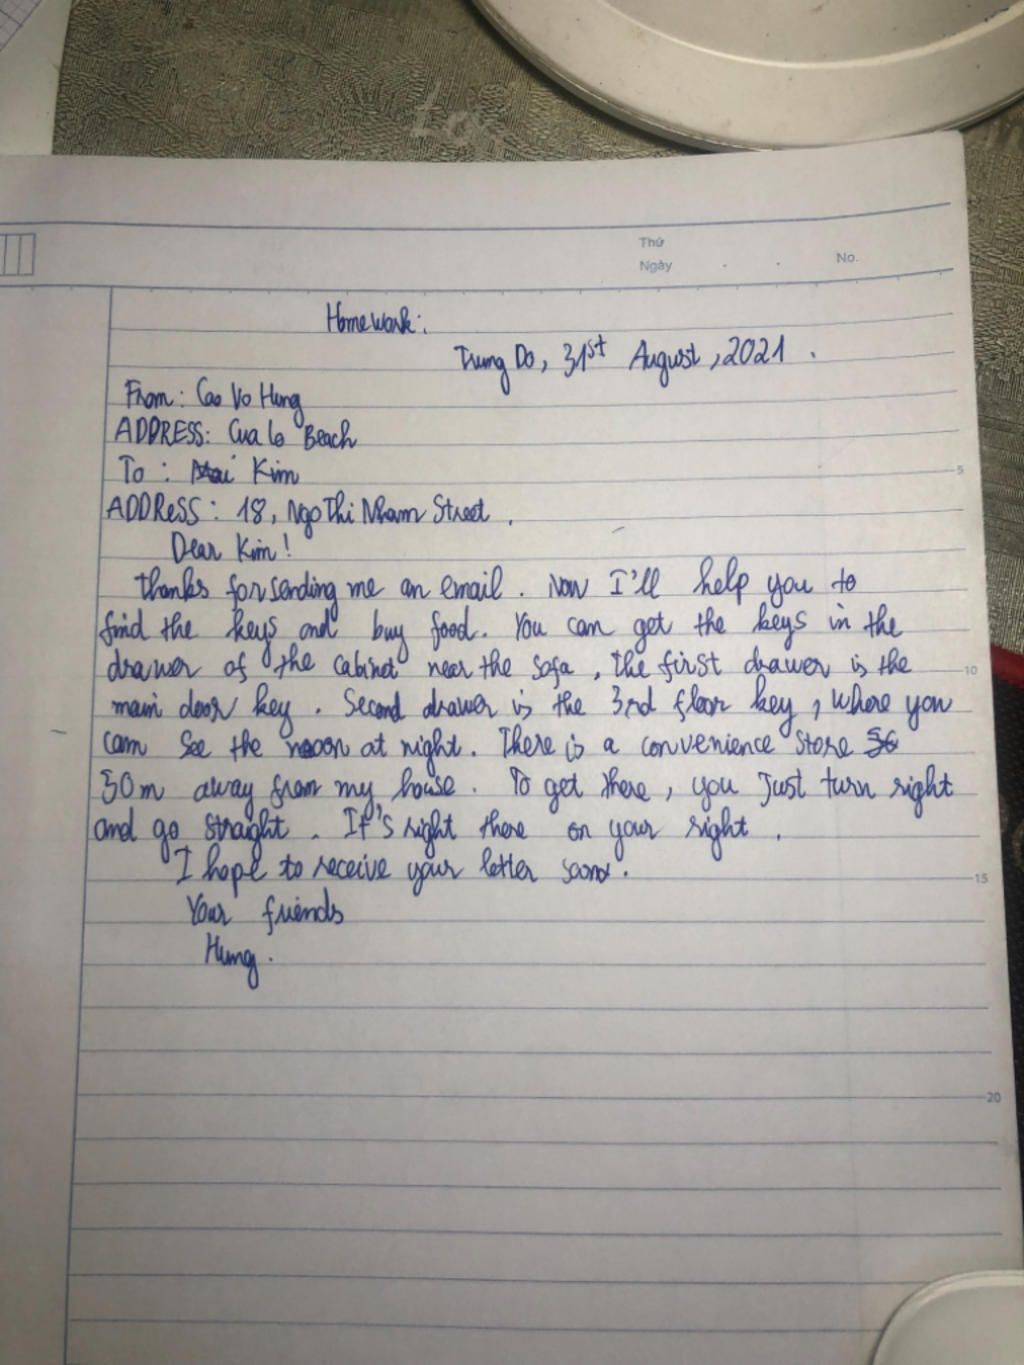 Thứ
Ngày . . No.
Homework:
Trung Do, 31st August, 2021.
From: Cao Vo Hung
ADDRESS: Cua Lo Beach
To: Kim
ADDReSS: 18, Ngo Thi Nham Street.
Dear Kim!
thanks for sending me an email. Now I'll help you to
find the keys and buy food. You can get the keys in the
drawer of the cabinet near the sofa, the first drawer is the
main door key. Second drawer is the 3rd floor key, where you
cam see the moon at night. There is a convenience store
50m away from my house. To get there, you just turn right
and go straight. It's right there on your right.
I hope to receive your letter soon.
Your friends
Hung.
5
10
15
20